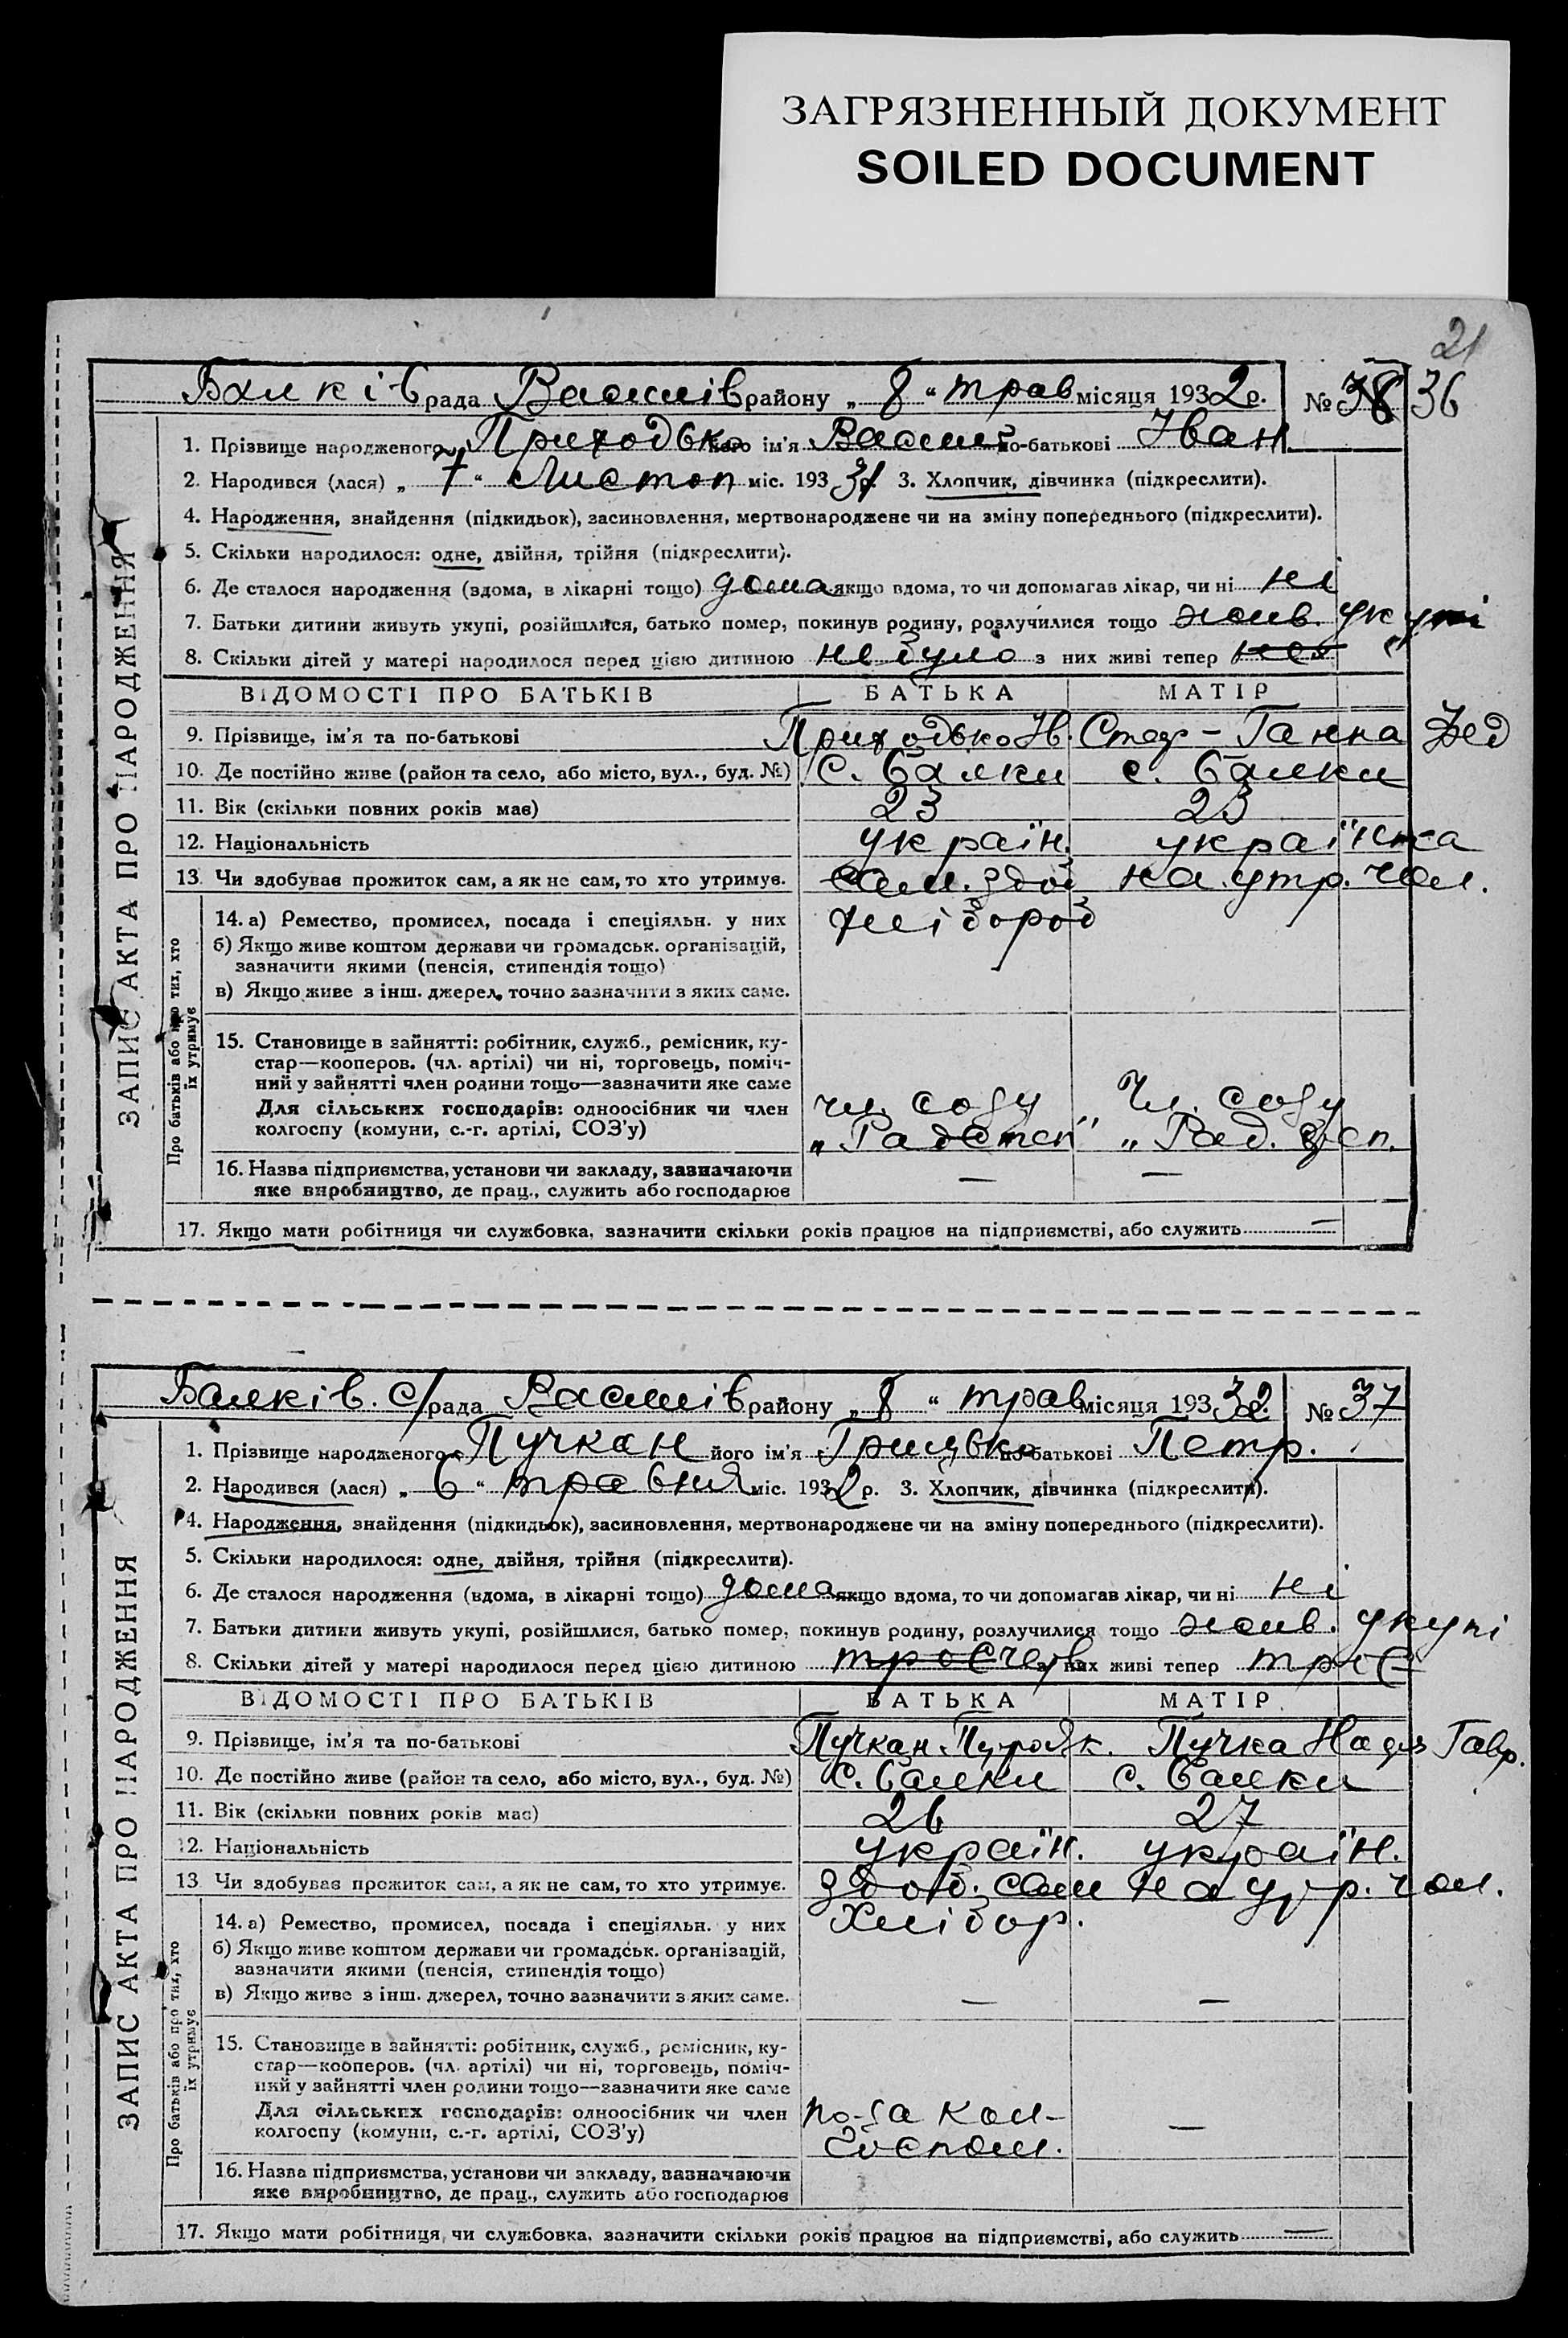 ЗАГРЯЗНЕННЫЙ ДОКУМЕНТ
SOILED DOCUMENT
21
Балків рада Василів району „ 8 “ трав місяця 1932р. № 36
1. Прізвище народженого Приходько його ім'я Василь по-батькові Іван
2. Народився (лася) „ 7 “ Листоп міс. 193 31 3. Хлопчик, дівчинка (підкреслити).
4. Народження, знайдення (підкидьок), засиновлення, мертвонароджене чи на зміну попереднього (підкреслити).
5. Скільки народилося: одне, двійня, трійня (підкреслити).
6. Де сталося народження (вдома, в лікарні тощо) дома якщо вдома, то чи допомагав лікар, чи ні ні
7. Батьки дитини живуть укупі, розійшлися, батько помер, покинув родину, розлучилися тощо жив. укупі
8. Скільки дітей у матері народилося перед цією дитиною не було з них живі тепер
ВІДОМОСТІ ПРО БАТЬКІВ БАТЬКА МАТІР
9. Прізвище, ім'я та по-батькові Приходько Ів. Ганна Фед
10. Де постійно живе (район та село, або місто, вул., буд. №) С. Балки с. Балки
11. Вік (скільки повних років має) 23 23
12. Національність україн. українка
13. Чи здобував прожиток сам, а як не сам, то хто утримує. сам. здоб на утр. чол.
14. а) Ремество, промисел, посада і спеціяльн. у них хліборо
б) Якщо живе коштом держави чи громадськ. організацій,
зазначити якими (пенсія, стипендія тощо)
в) Якщо живе з інш. джерел, точно зазначити з яких саме.
15. Становище в зайнятті: робітник, служб., ремісник, ку-
стар—кооперов. (чл. артілі) чи ні, торговець, поміч-
ний у зайнятті член родини тощо—зазначити яке саме
Для сільських господарів: одноосібник чи член чл. созу Чл. созу
колгоспу (комуни, с.-г. артілі, СОЗ'у) „ „ Рад.
16. Назва підприємства, установи чи закладу, зазначаючи — —
яке виробництво, де прац., служить або господарює
17. Якщо мати робітниця чи службовка, зазначити скільки років працює на підприємстві, або служить —
ЗАПИС АКТА ПРО НАРОДЖЕННЯ
Про батьків або про тих, хто
їх утримує
Балків. с/рада Василів району „ 8 “ трав місяця 193 32. № 37
1. Прізвище народженого Пучкан його ім'я Грицько по-батькові Петр.
2. Народився (лася) „ 6 “ травня міс. 1932 р. 3. Хлопчик, дівчинка (підкреслити).
4. Народження, знайдення (підкидьок), засиновлення, мертвонароджене чи на зміну попереднього (підкреслити).
5. Скільки народилося: одне, двійня, трійня (підкреслити).
6. Де сталося народження (вдома, в лікарні тощо) дома якщо вдома, то чи допомагав лікар, чи ні ні
7. Батьки дитини живуть укупі, розійшлися, батько помер, покинув родину, розлучилися тощо жив. укупі
8. Скільки дітей у матері народилося перед цією дитиною з них живі тепер троє
ВІДОМОСТІ ПРО БАТЬКІВ БАТЬКА МАТІР
9. Прізвище, ім'я та по-батькові Пучкан Пучка Надя Гавр.
10. Де постійно живе (район та село, або місто, вул., буд. №) С. Балки с. Балки
11. Вік (скільки повних років має) 26 27
12. Національність україн. україн.
13. Чи здобував прожиток сам, а як не сам, то хто утримує. здоб. сам на утр. чол.
14. а) Ремество, промисел, посада і спеціяльн. у них Хлібор.
б) Якщо живе коштом держави чи громадськ. організацій,
зазначити якими (пенсія, стипендія тощо)
в) Якщо живе з інш. джерел, точно зазначити з яких саме. — —
15. Становище в зайнятті: робітник, служб., ремісник, ку-
стар—кооперов. (чл. артілі) чи ні, торговець, поміч-
ний у зайнятті член родини тощо—зазначити яке саме
Для сільських господарів: одноосібник чи член по-за кол- —
колгоспу (комуни, с.-г. артілі, СОЗ'у) госпом.
16. Назва підприємства, установи чи закладу, зазначаючи
яке виробництво, де прац., служить або господарює
17. Якщо мати робітниця чи службовка, зазначити скільки років працює на підприємстві, або служить —
ЗАПИС АКТА ПРО НАРОДЖЕННЯ
Про батьків або про тих, хто
їх утримує